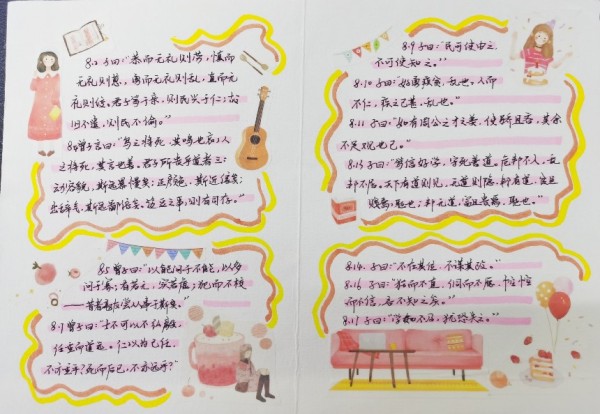 8.2 子曰:“恭而无礼则劳,慎而
无礼则葸,勇而无礼则乱,直而无
礼则绞。君子笃于亲,则民兴于仁;故
旧不遗,则民不偷。”
曾子言曰:“鸟之将死,其鸣也哀;人
之将死,其言也善。君子所贵乎道者三:
动容貌,斯远暴慢矣;正颜色,斯近信矣;
出辞气,斯远鄙倍矣。笾豆之事,则有司存。”
8.5 曾子曰:“以能问于不能,以多
问于寡;有若无,实若虚;犯而不校
——昔者吾友尝从事于斯矣。”
曾子曰:“士不可以不弘毅,
任重而道远。仁以为己任,
不亦重乎?死而后已,不亦远乎?”
8.9 子曰:“民可使由之,
不可使知之。”
8.10 子曰:“好勇疾贫,乱也。人而
不仁,疾之已甚,乱也。”
8.11 子曰:“如有周公之才之美,使骄且吝,其余
不足观也已。”
8.13 子曰:“笃信好学,守死善道。危邦不入,乱
邦不居。天下有道则见,无道则隐。邦有道,贫且
贱焉,耻也;邦无道,富且贵焉,耻也。”
8.14 子曰:“不在其位,不谋其政。”
8.16 子曰:“狂而不直,侗而不愿,悾悾
而不信,吾不知之矣。”
8.17 子曰:“学如不及,犹恐失之。”